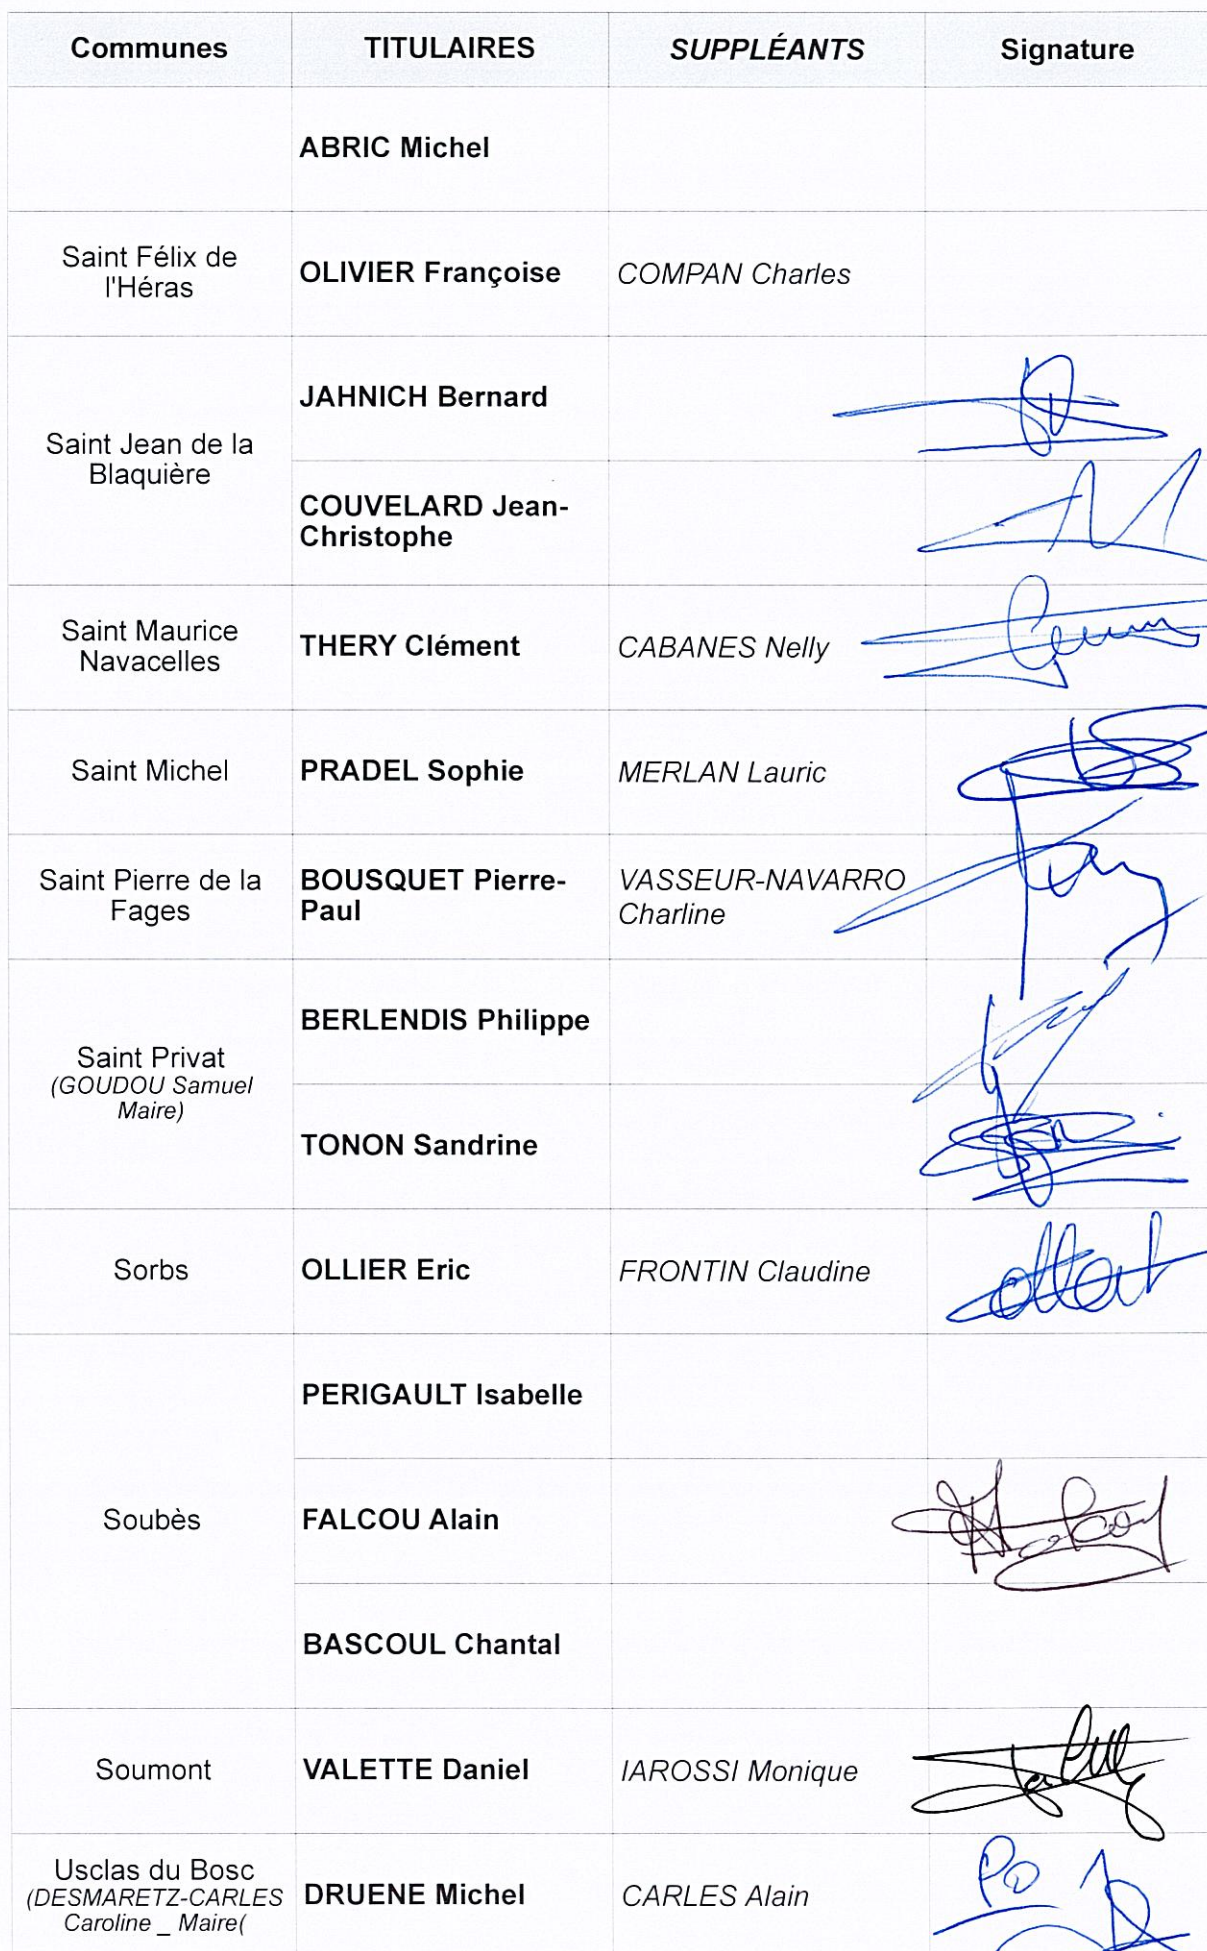 Communes TITULAIRES SUPPLÉANTS Signature
ABRIC Michel
Saint Félix de
l'Héras
OLIVIER Françoise COMPAN Charles
Saint Jean de la
Blaquière
JAHNICH Bernard
COUVELARD Jean-
Christophe
Saint Maurice
Navacelles
THERY Clément CABANES Nelly
Saint Michel PRADEL Sophie MERLAN Lauric
Saint Pierre de la
Fages
BOUSQUET Pierre-
Paul
VASSEUR-NAVARRO
Charline
Saint Privat
(GOUDOU Samuel
Maire)
BERLENDIS Philippe
TONON Sandrine
Sorbs OLLIER Eric FRONTIN Claudine
Soubès
PERIGAULT Isabelle
FALCOU Alain
BASCOUL Chantal
Soumont VALETTE Daniel IAROSSI Monique
Usclas du Bosc
(DESMARETZ-CARLES
Caroline _ Maire(
DRUENE Michel CARLES Alain